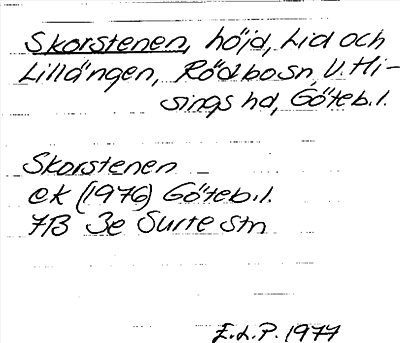 Skorstenen, höjd, Lid och
Lillängen, Rödbo sn, V. Hi-
sings hd, Göteb. l.
Skorstenen
ek (1976) Göteb. l.
7B 3e Surte stn
E.L.P. 1977